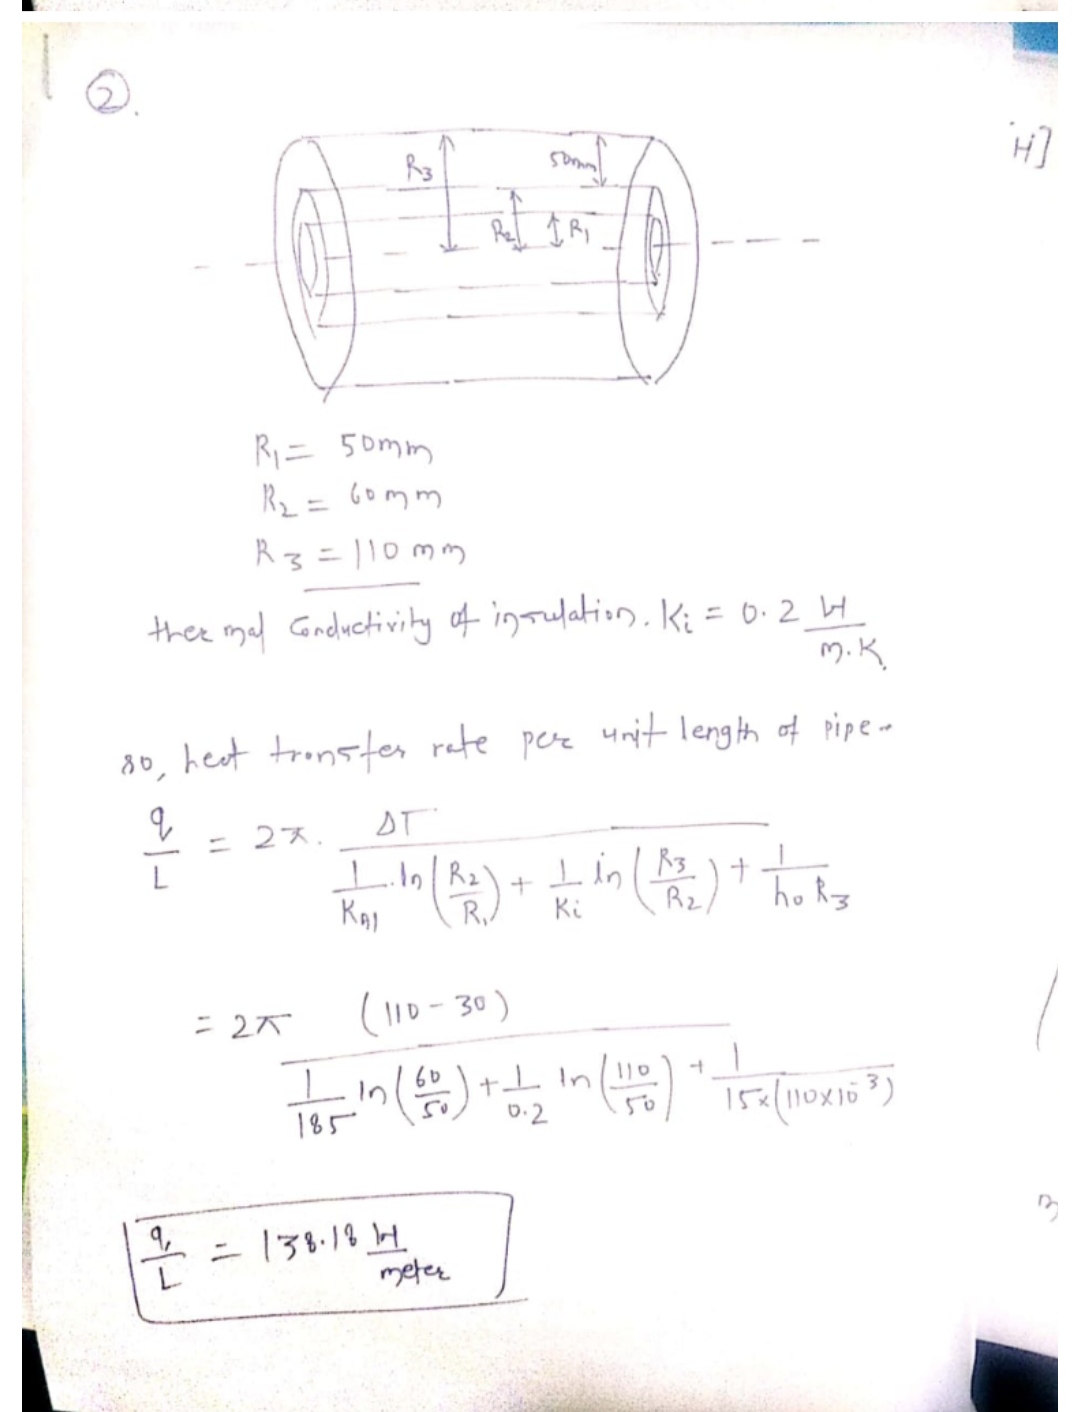 ②.
H]
R3
50mm
R2
R1
R1 = 50mm
R2 = 60mm
R3 = 110 mm
thermal Conductivity of insulation. Ki = 0.2 W/m.K.
so, heat transfer rate per unit length of pipe -
q/L = 2π. ΔT / (1/KAl . ln (R2/R1) + 1/Ki ln (R3/R2) + 1/ho R3)
= 2π (110 - 30) / (1/185 ln (60/50) + 1/0.2 ln (110/50) + 1/15x(110x10-3))
q/L = 138.18 W/meter